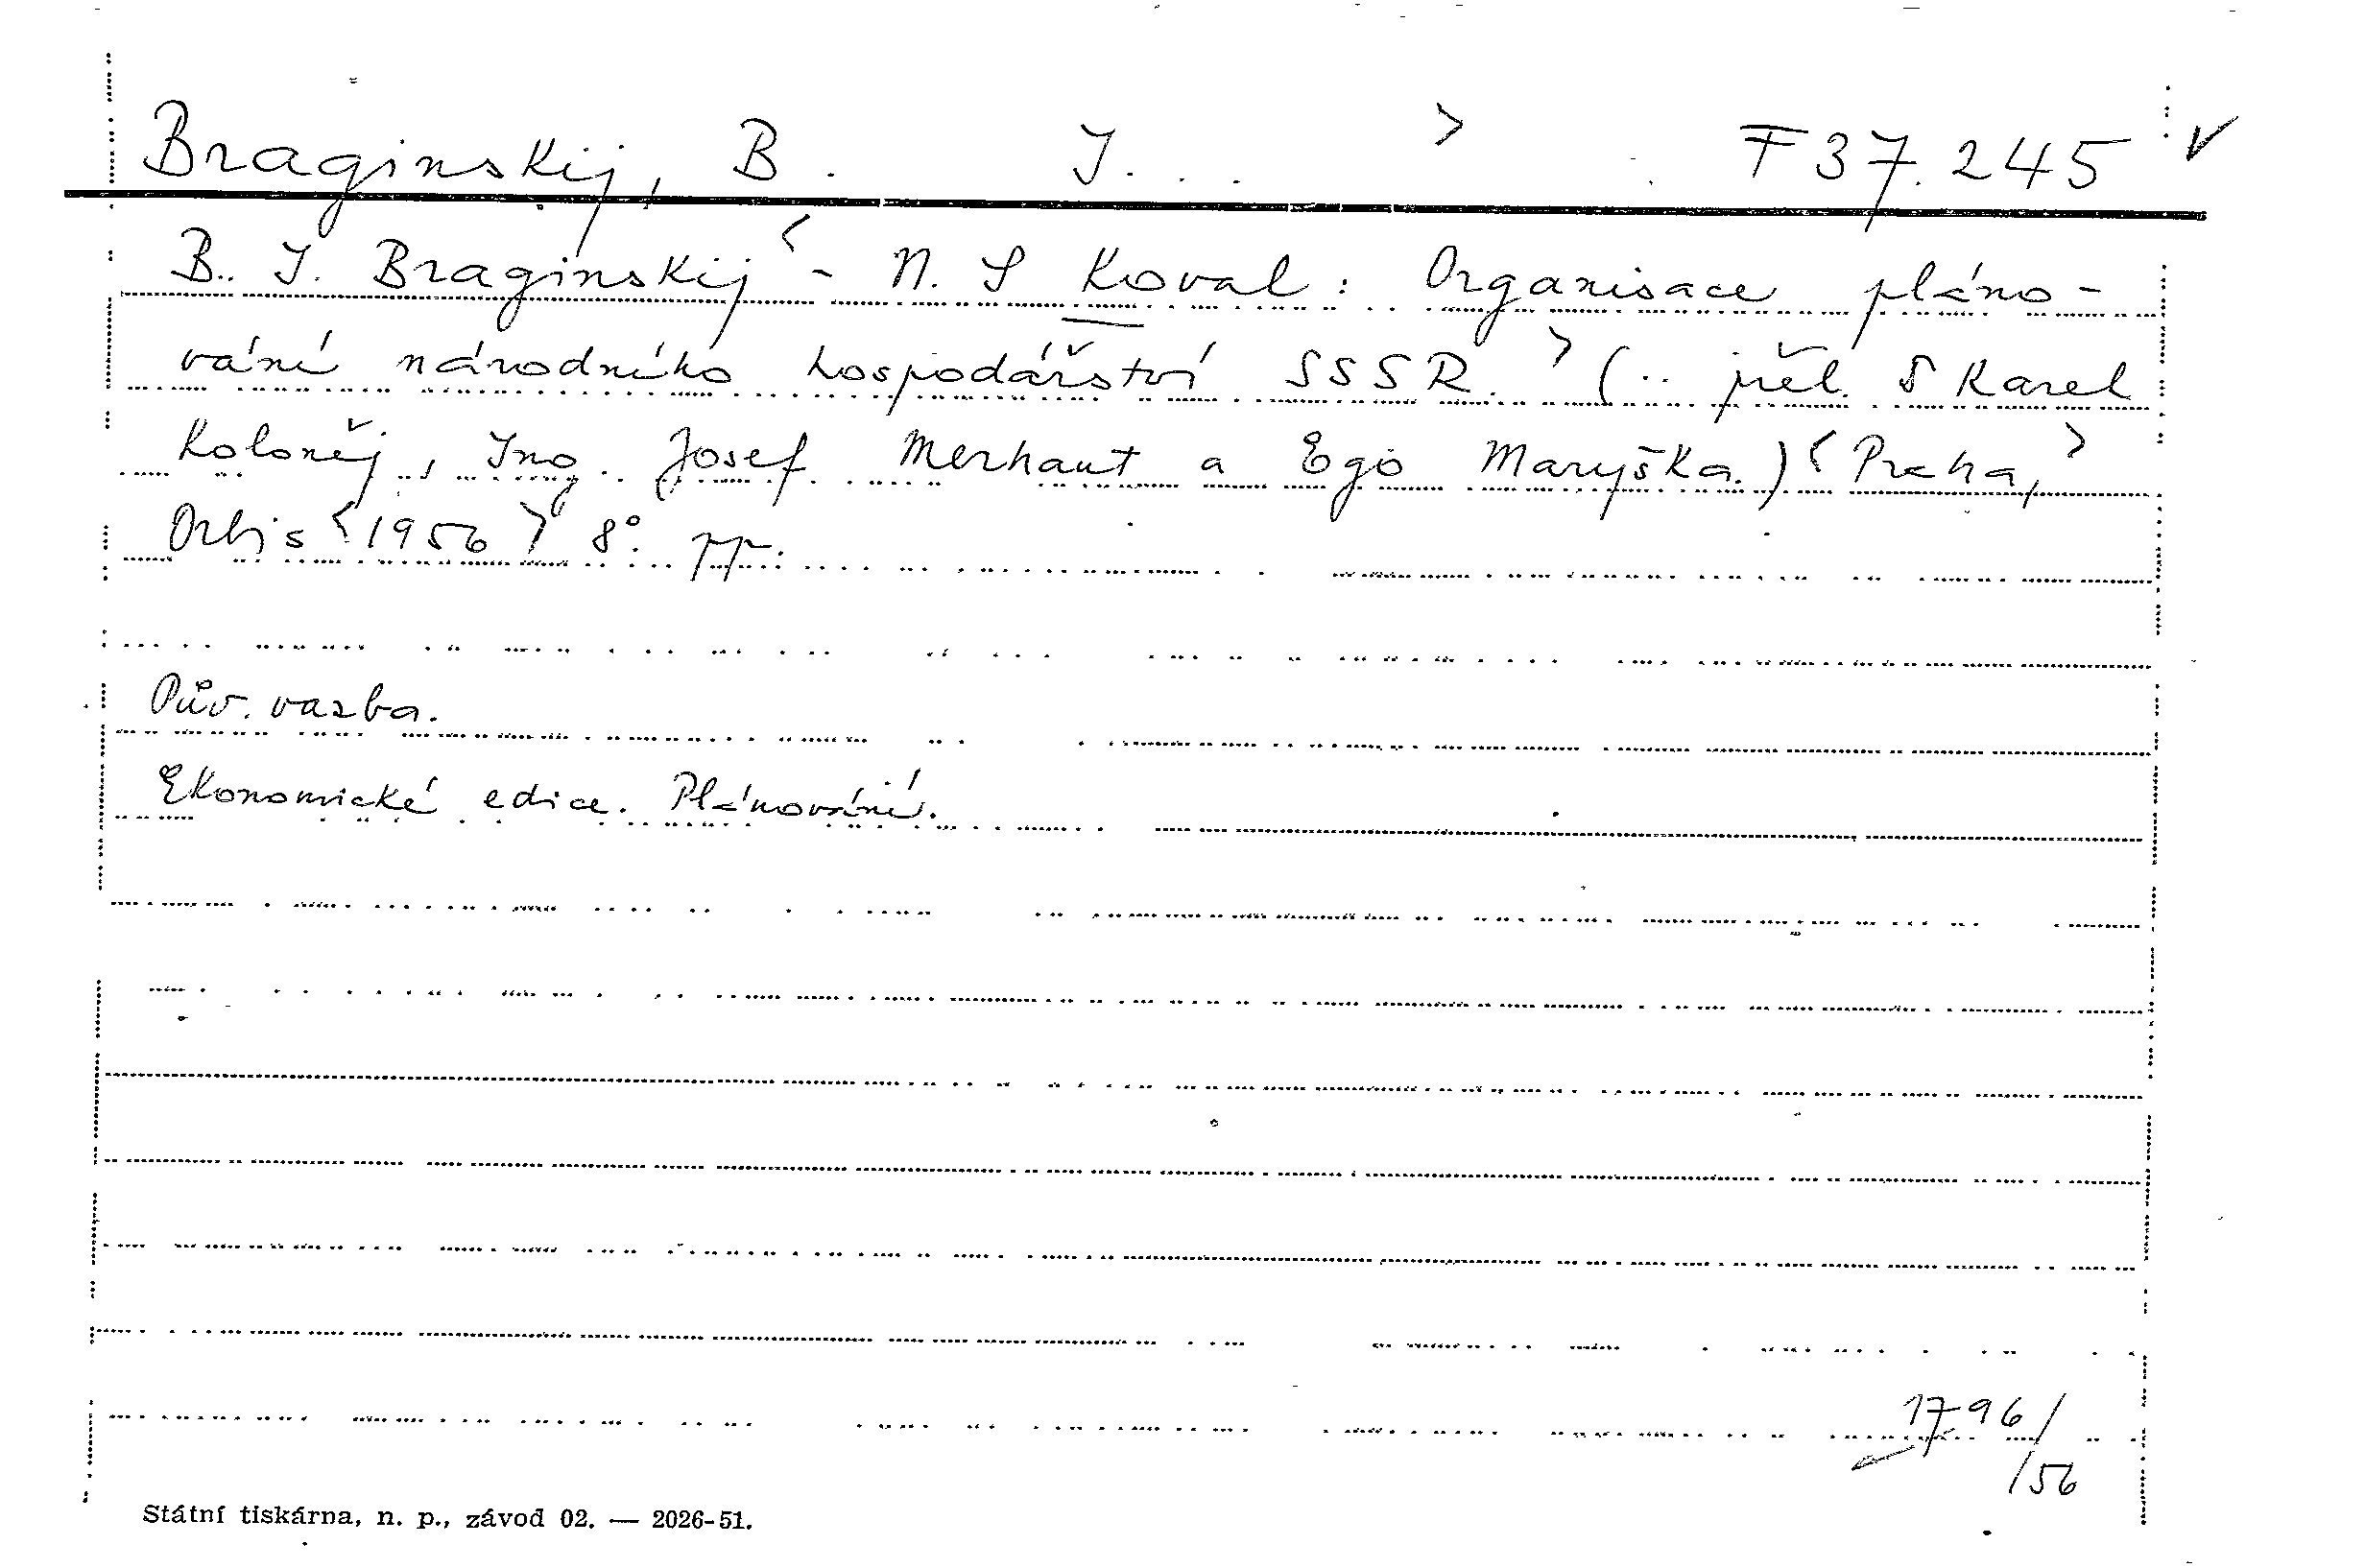 Braginskij, B. J. . . > F 37.245 V
B. J. Braginskij < - N. S Koval: Organisace pláno-
vání národního hospodářství SSSR. > (.. přel. Karel
Koloněj, Ing. Josef Merhaut a Ego Maryška.) < Praha, >
Orbis < 1956 > 8°. pp.
Pův. vazba.
Ekonomické edice. Plánování.
1796/
/56
Státní tiskárna, n. p., závod 02. — 2026-51.